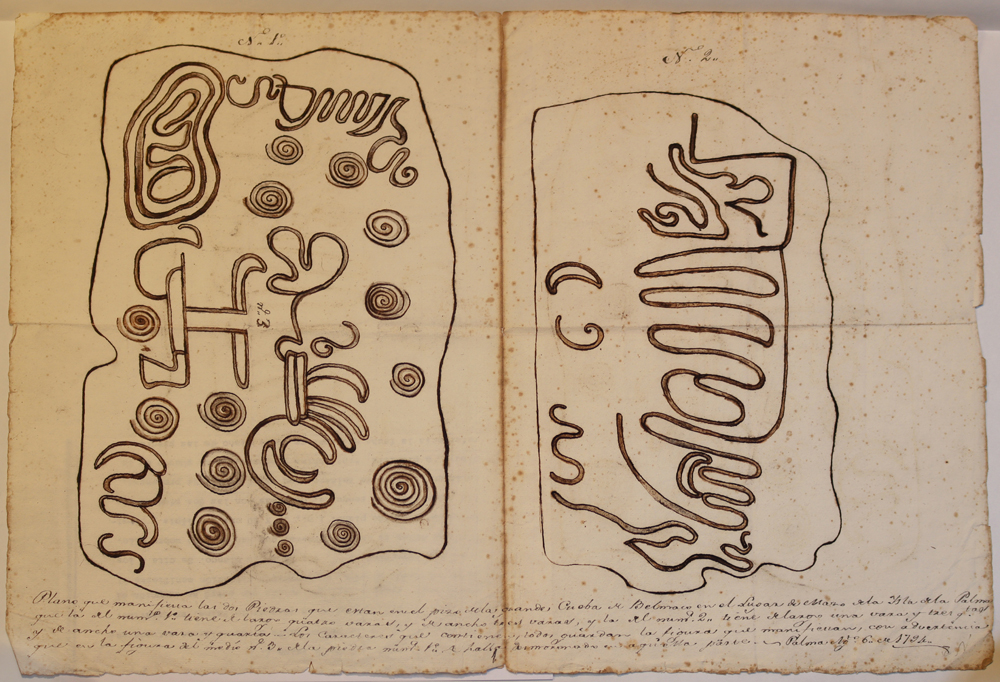 N.º 1.º
N.º 2.º
n.º 3
Plano que manifiesta las dos Piedras que estan en el piso de la grande Cueba de Belmaco en el Lugar de Mazo de la Isla de la Palma
que la del num.º 1.º tiene de largo quatro varas, y de ancho tres varas, y la del num.º 2.º tiene de largo una vara y tres
y de ancho una vara y quarta los Caracteres que contiene todos guardan la figura que manifiestan, con advertencia
que en la figura del medio n.º 3.º de la piedra num.º 1.º se halla demoronada en aquella parte. Palma 6. de